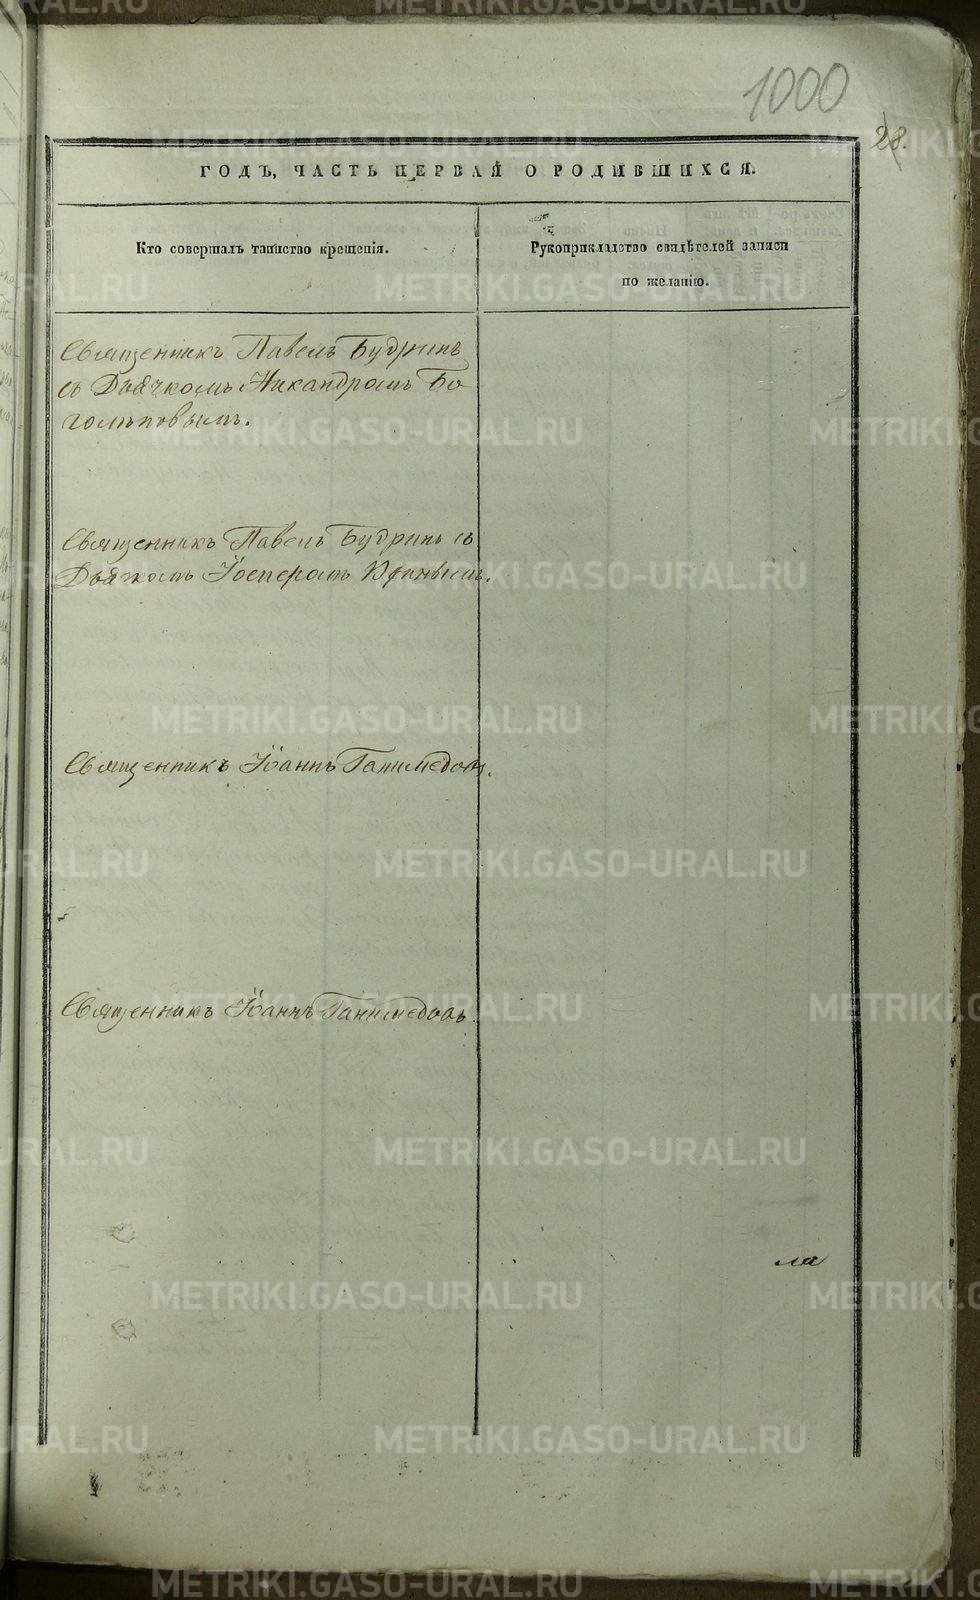 1000
28.
ГОДЪ, ЧАСТЬ ПЕРВАЯ О РОДИВШИХСЯ.
Кто совершалъ таинство крещенія.
Рукоприкладство свидѣтелей записи
по желанію.
Священникъ Павелъ Будринъ
съ Дьячкомъ Никандромъ Бо
голѣповымъ.
Священникъ Павелъ Будринъ съ
Дьячкомъ
Священникъ Іоаннъ Ганимедовъ.
Священникъ Іоаннъ Ганимедовъ
ла
METRIKI.GASO-URAL.RU